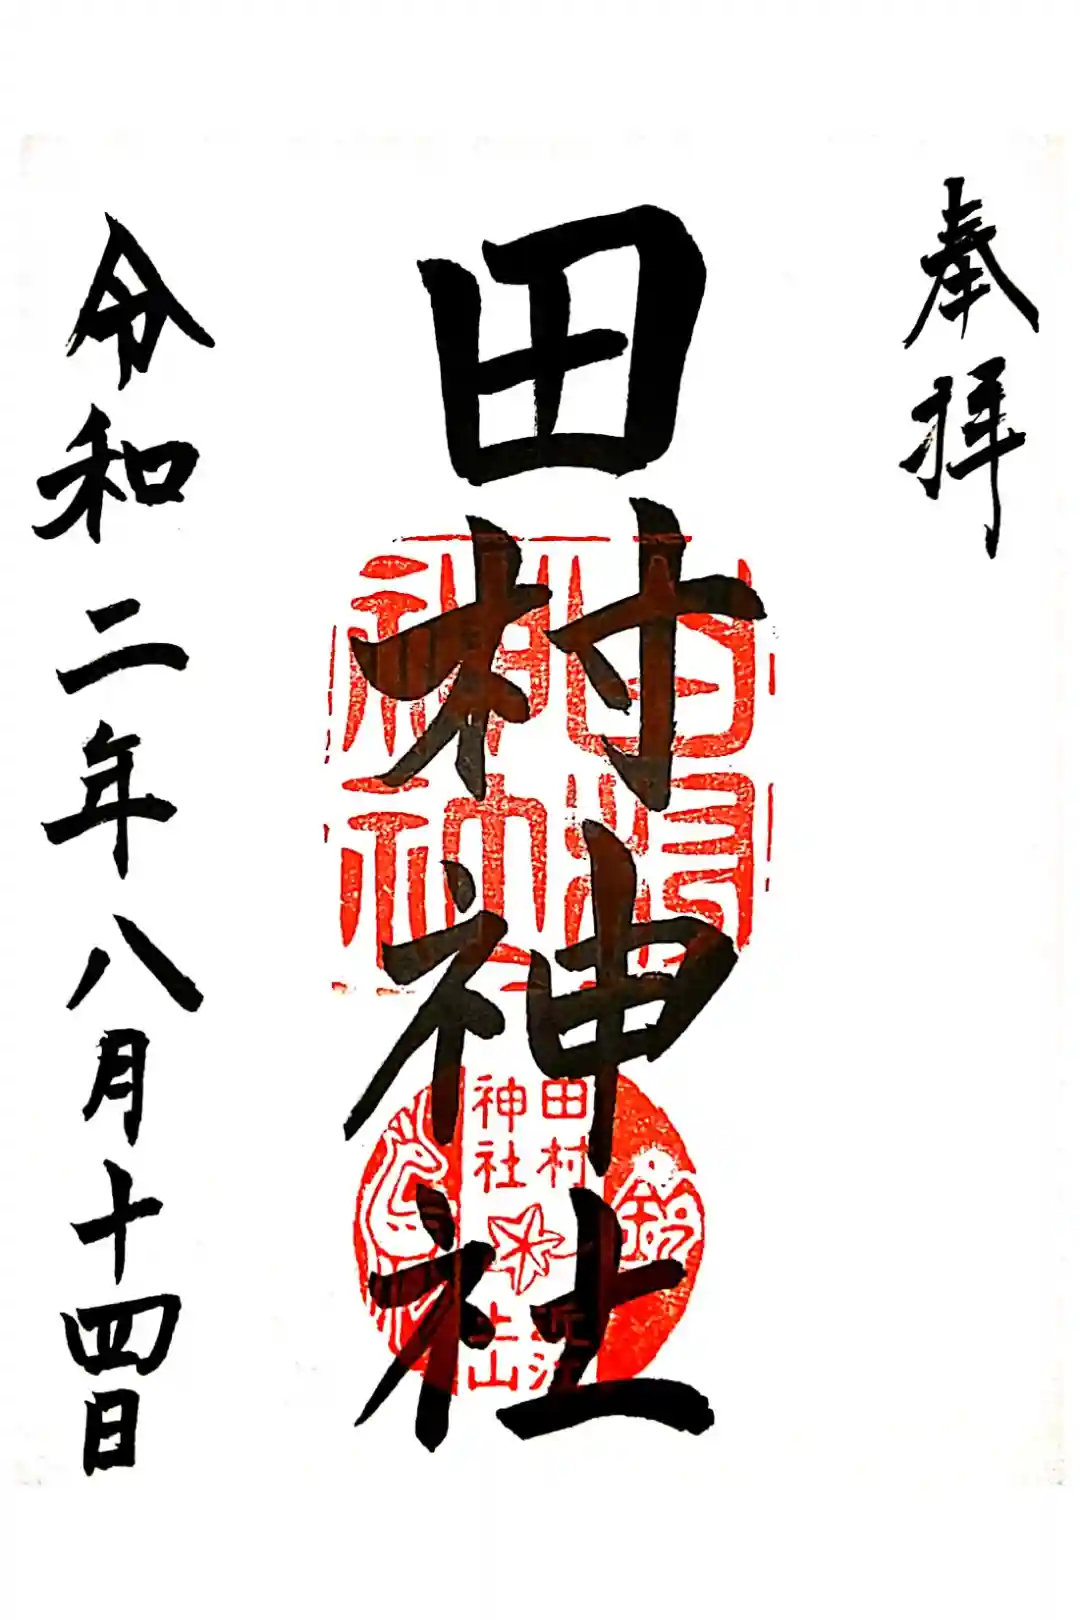 奉拝
田村神社
令和二年八月十四日
田村
神社
鈴
近江
土山